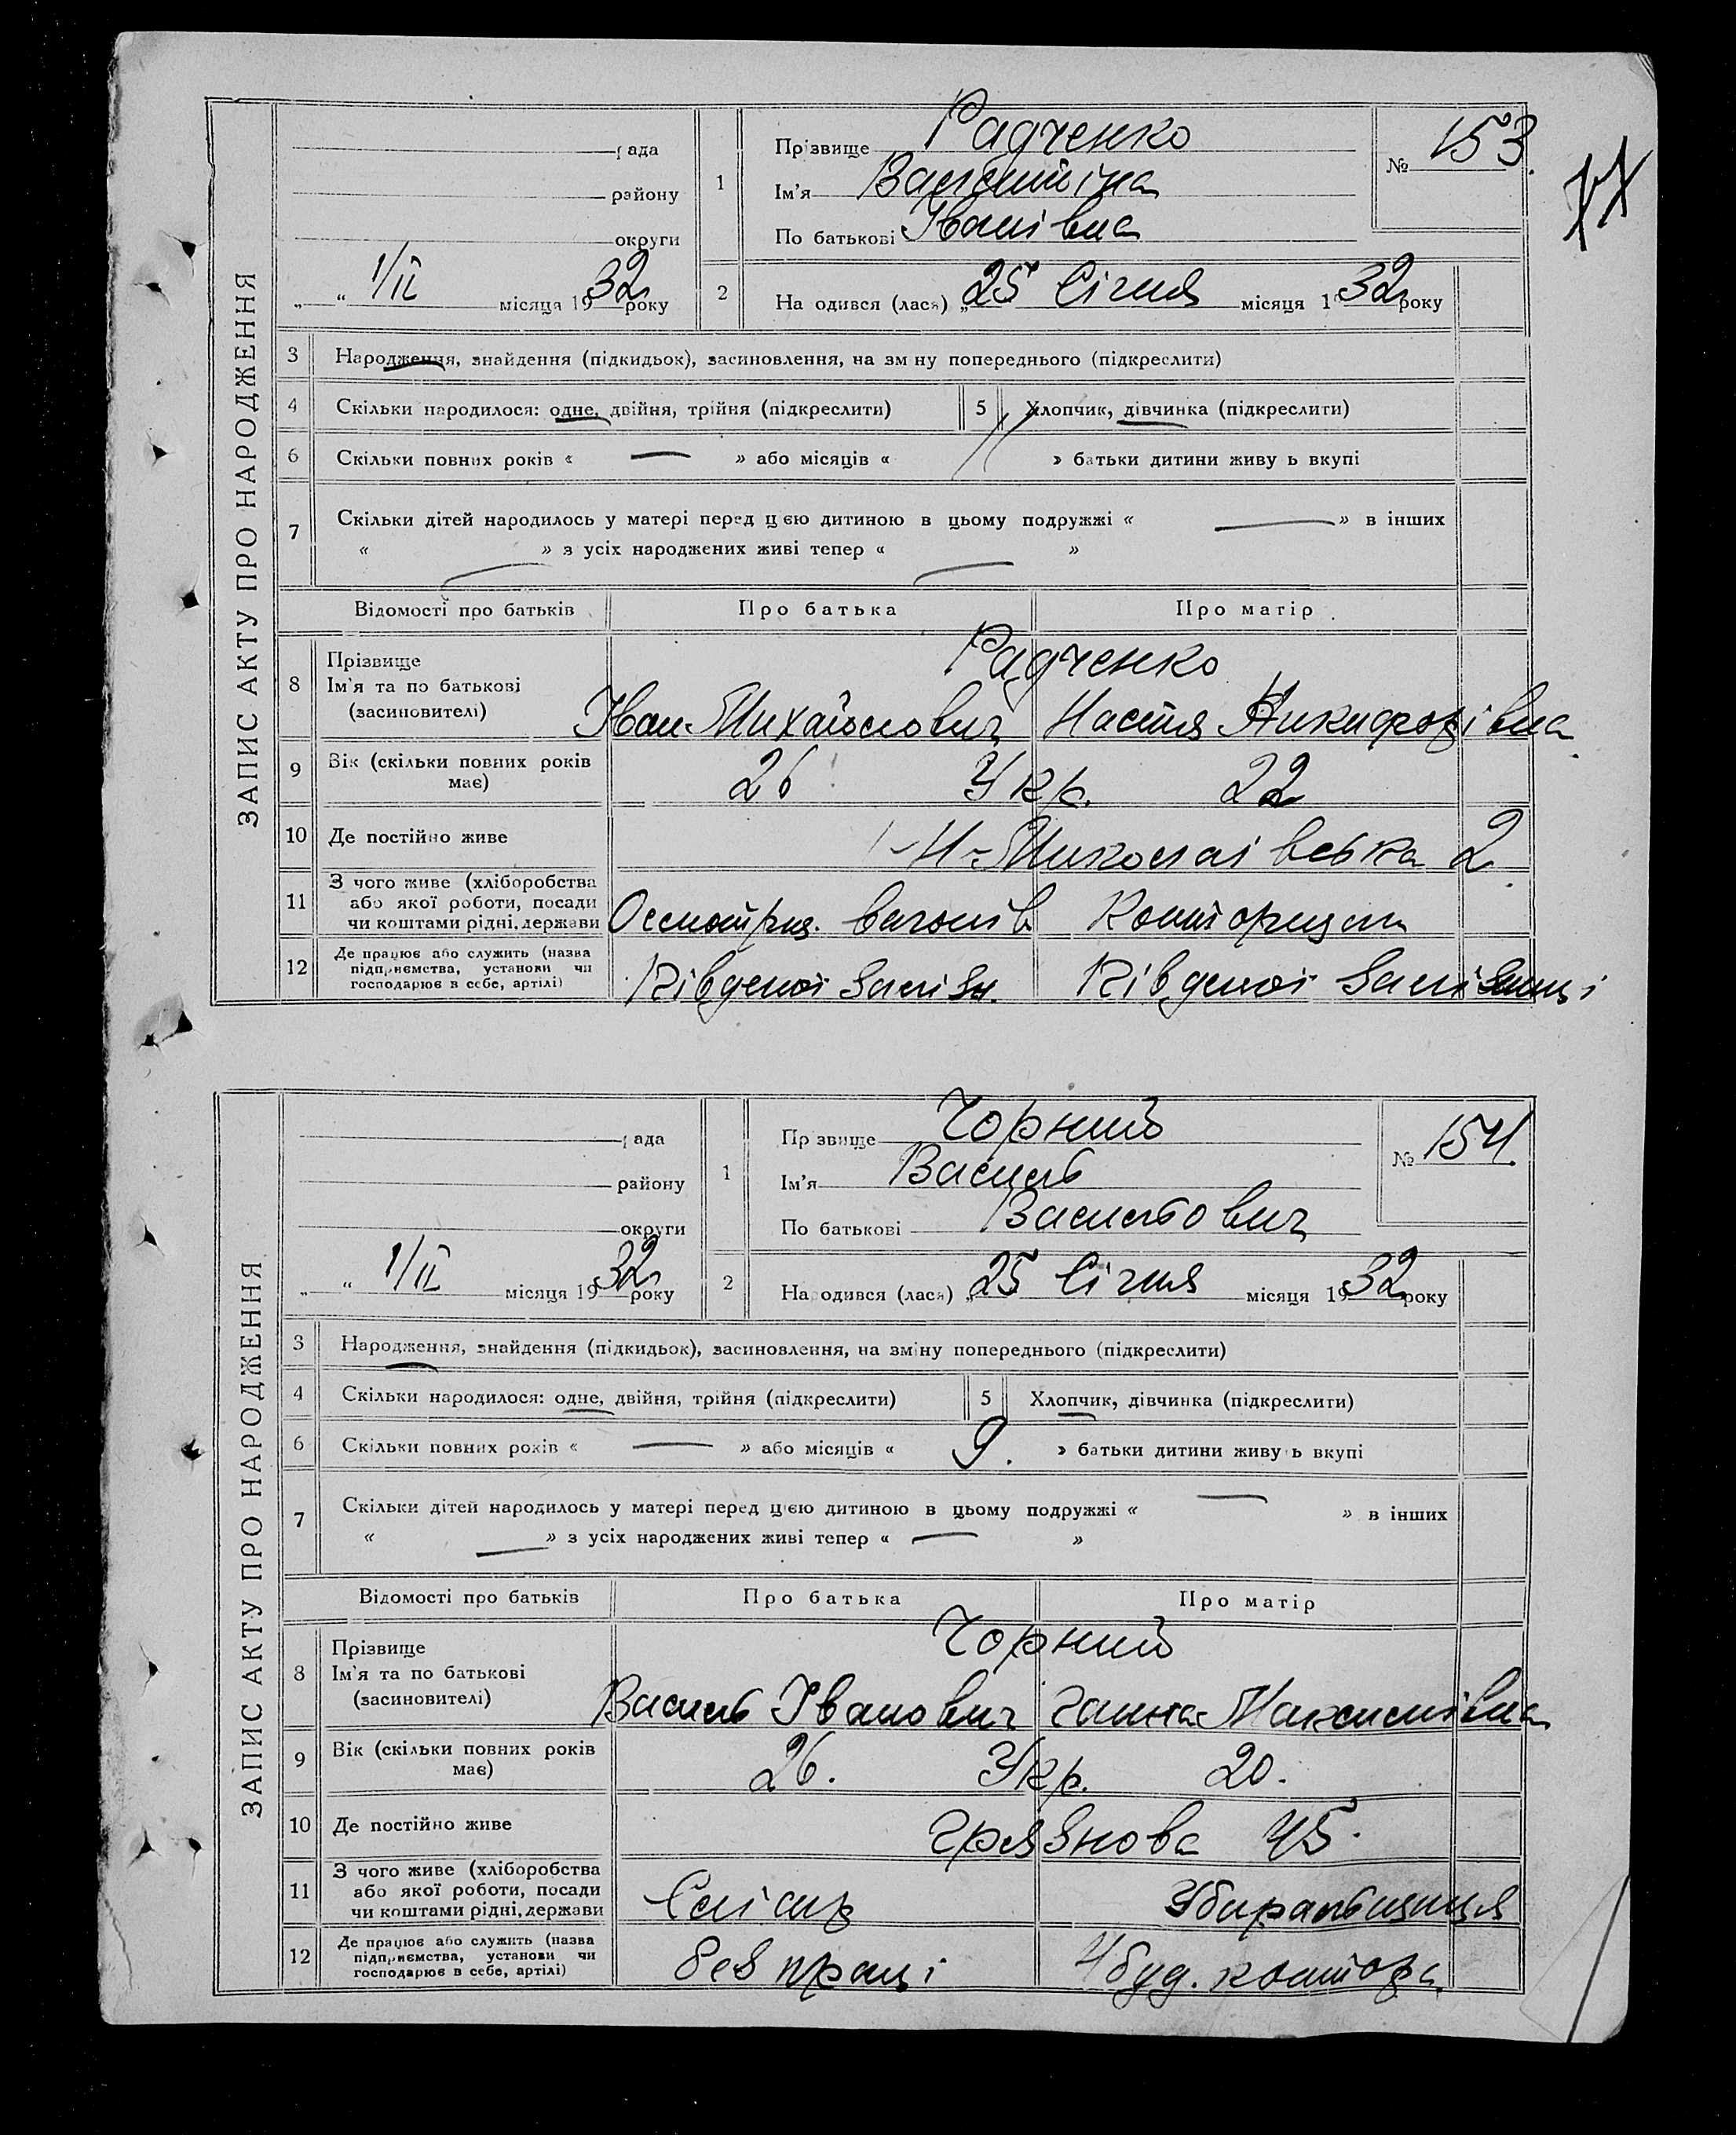 ЗАПИС АКТУ ПРО НАРОДЖЕННЯ
рада
району
округи
„ “ 1/II місяця 1932 року
1 Прізвище Радченко
Ім'я Валентина
По батькові Іванівна
№ 153
2 На одився (лася) „25 Січня місяця 1932 року
3 Народження, знайдення (підкидьок), засиновлення, на зм ну попереднього (підкреслити)
4 Скільки народилося: одне, двійня, трійня (підкреслити) 5 Хлопчик, дівчинка (підкреслити)
6 Скільки повних років « — » або місяців « » батьки дитини живу ь вкупі
7 Скільки дітей народилось у матері перед цією дитиною в цьому подружжі « — » в інших
« — » з усіх народжених живі тепер « — »
Відомості про батьків Про батька Про матір
8 Прізвище Радченко
Ім'я та по батькові
(засиновителі) Іван Михайлович Настя Никифорівна
9 Вік (скільки повних років
має) 26 Укр. 22
10 Де постійно живе Н-Миколаівська 2
11 З чого живе (хліборобства
або якої роботи, посади
чи коштами рідні, держави Осмотрщ. вагонів Конторщица
12 Де працює або служить (назва
підприємства, установи чи
господарює в себе, артілі) Південоі Залізн. Південоі Залізниці
ЗАПИС АКТУ ПРО НАРОДЖЕННЯ
рада
району
округи
„ “ 1/II місяця 1932 року
1 Пр звище Чорний
Ім'я Василь
По батькові Васильович
№ 154
2 Народився (лася) „25 Січня місяця 1932 року
3 Народження, знайдення (підкидьок), засиновлення, на зміну попереднього (підкреслити)
4 Скільки народилося: одне, двійня, трійня (підкреслити) 5 Хлопчик, дівчинка (підкреслити)
6 Скільки повних років « — » або місяців « 9. » батьки дитини живу ь вкупі
7 Скільки дітей народилось у матері перед цією дитиною в цьому подружжі « — » в інших
« — » з усіх народжених живі тепер « — »
Відомості про батьків Про батька Про матір
8 Прізвище Чорний
Ім'я та по батькові
(засиновителі) Василь Іванович Ганна Максимівна
9 Вік (скільки повних років
має) 26. Укр. 20.
10 Де постійно живе Грязнова 45.
11 З чого живе (хліборобства
або якої роботи, посади
чи коштами рідні, держави Слісар Збиральщиця
12 Де працює або служить (назва
підприємства, установи чи
господарює в себе, артілі) без праці 4 буд. контора